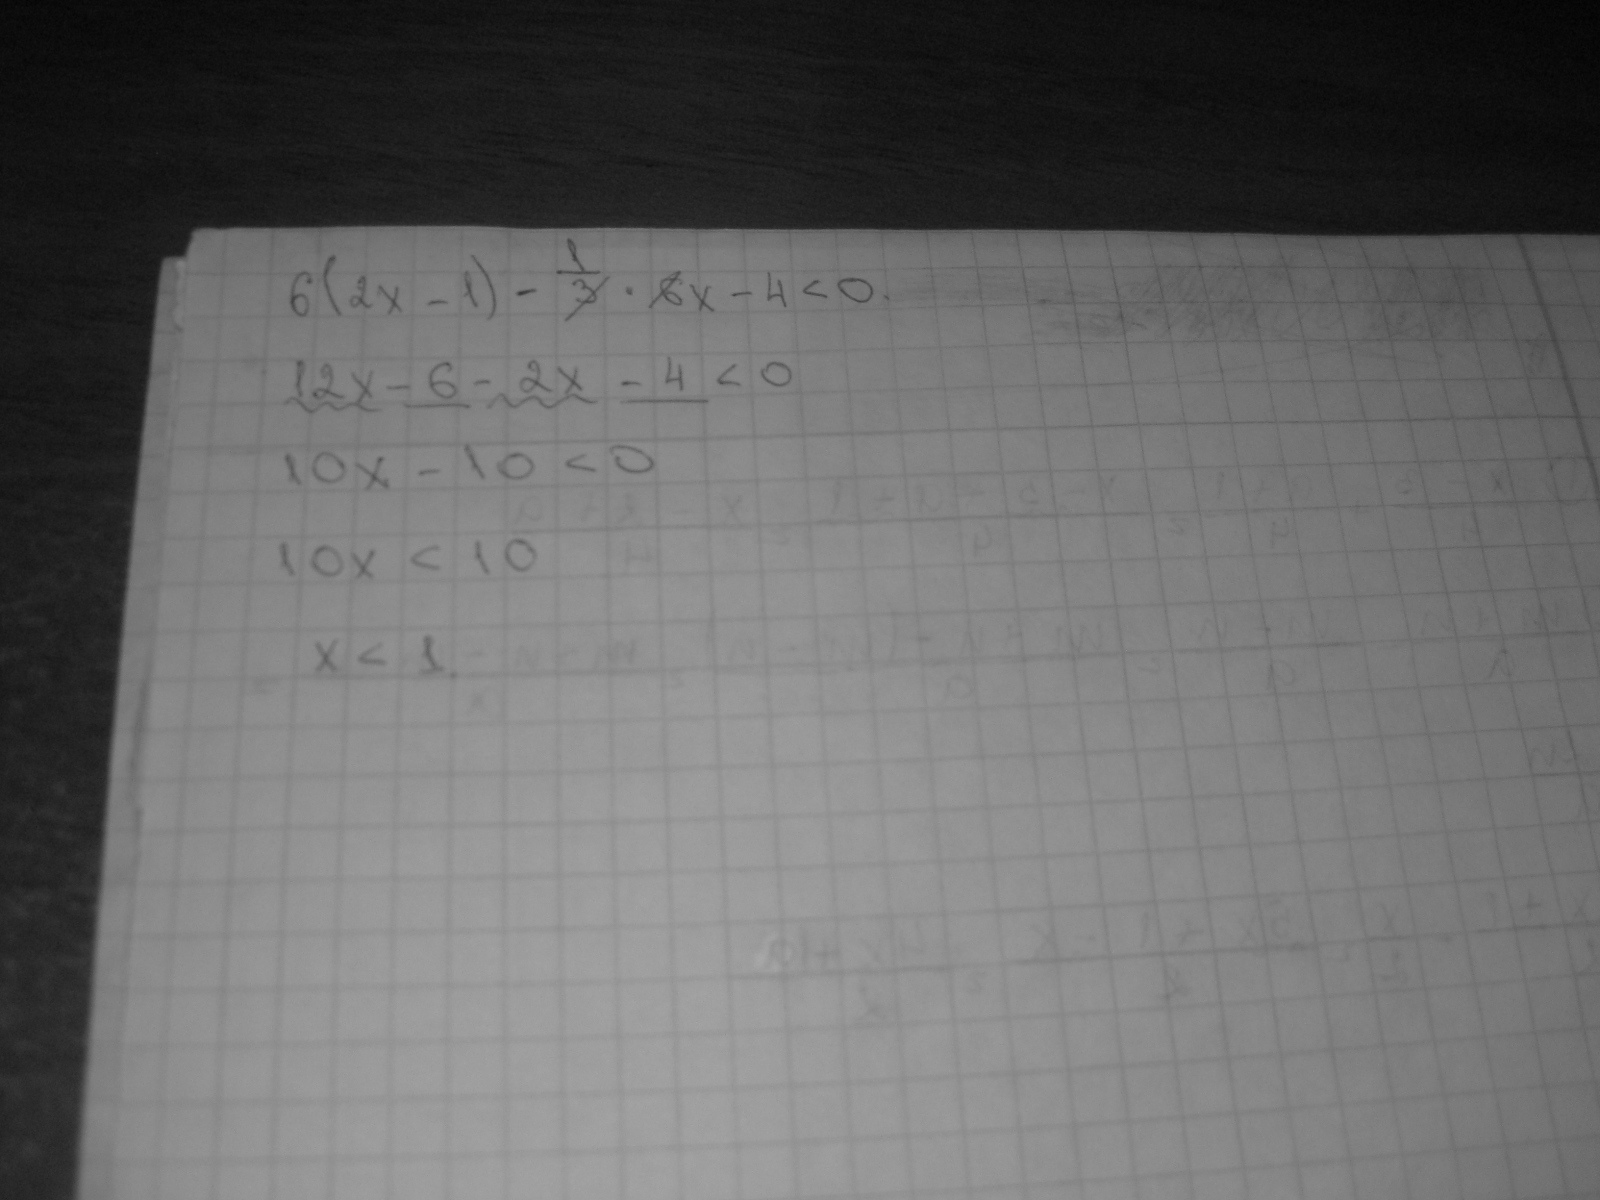 6(2x - 1) - 1/3 · 6x - 4 < 0.
12x - 6 - 2x - 4 < 0
10x - 10 < 0
10x < 10
x < 1.